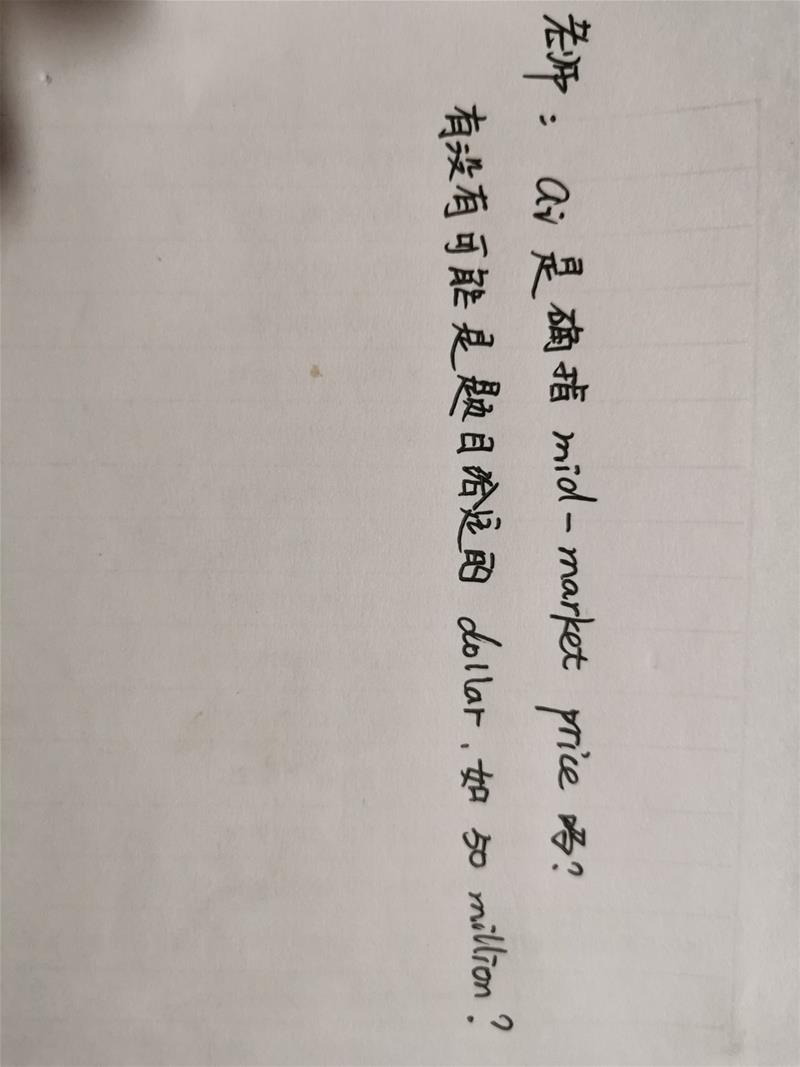 老师：ai是确指mid-market price吗?
有没有可能是题目给定的dollar,如50 million?